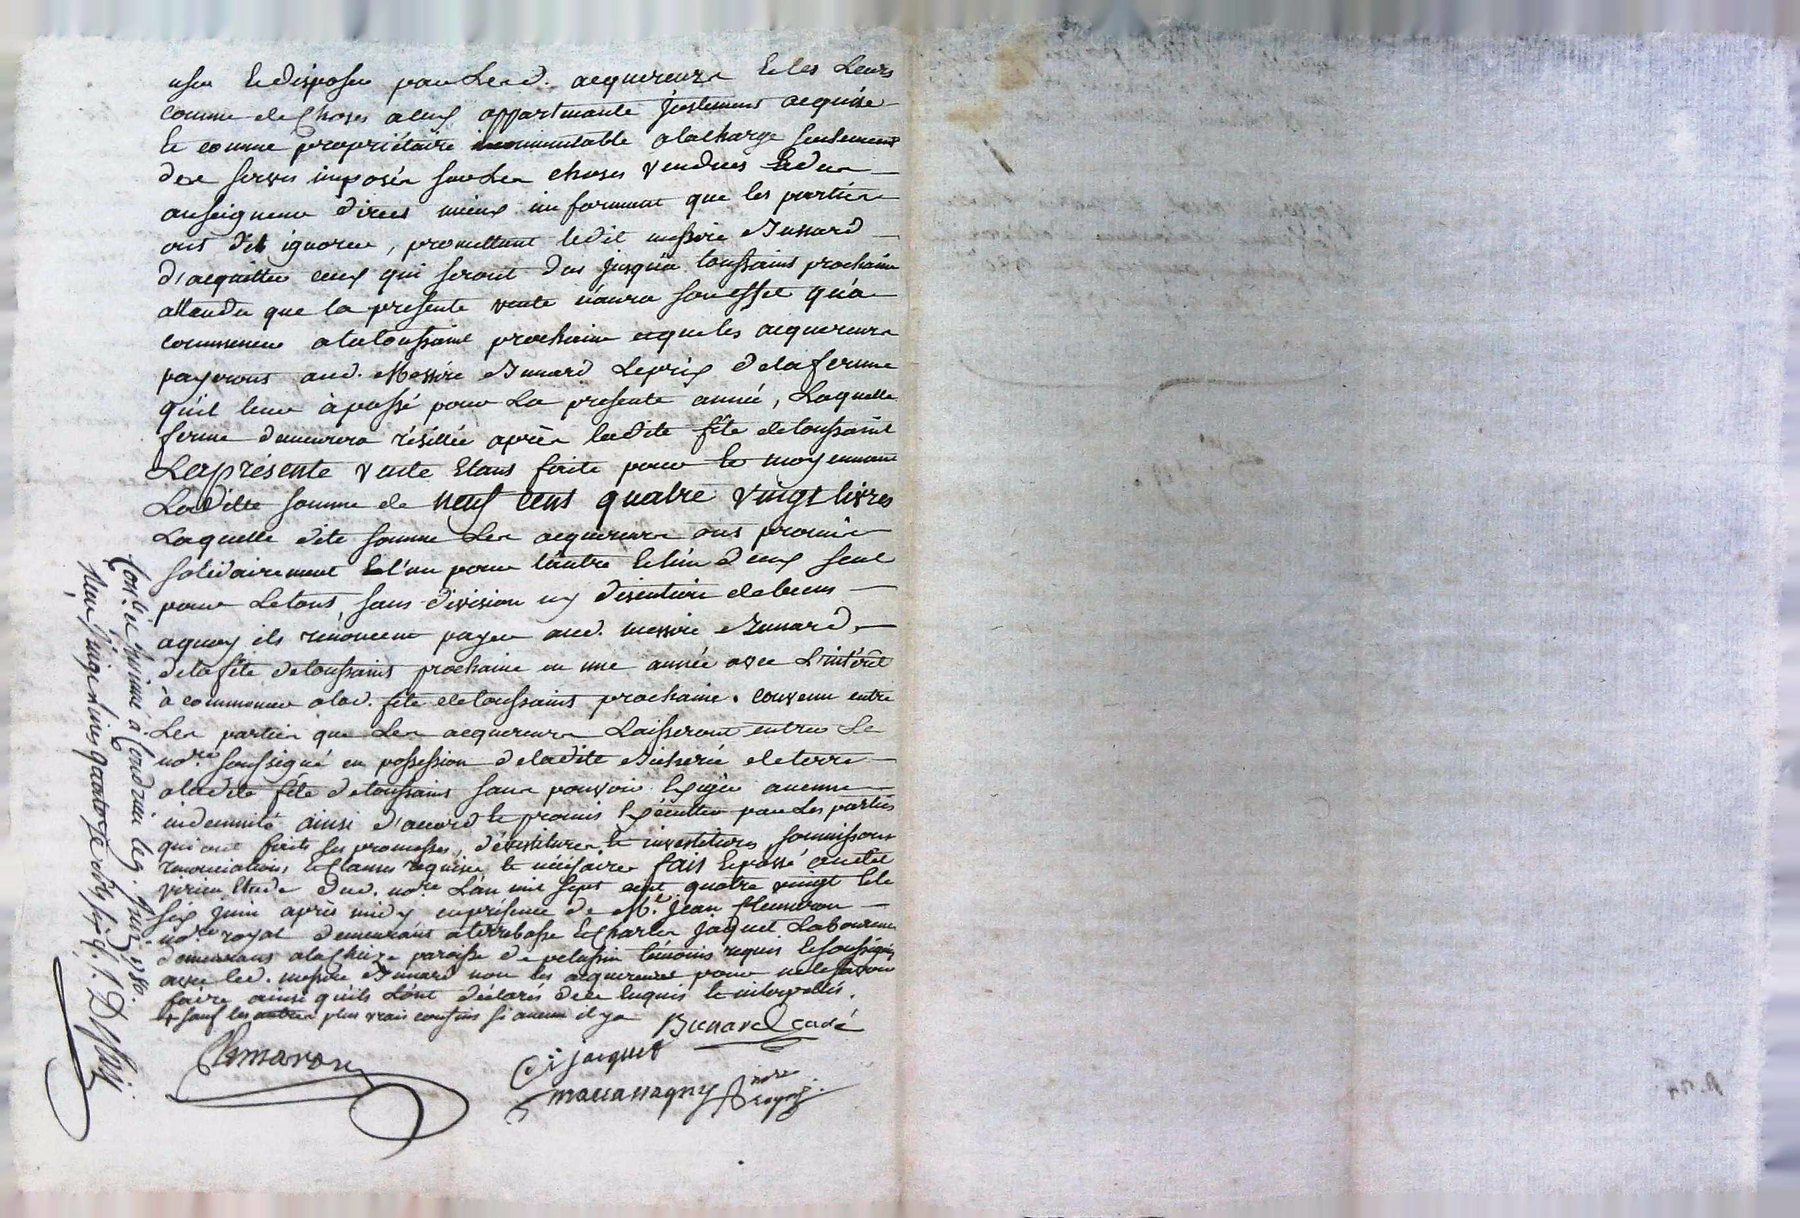 user et disposer par les d. acquereurs et les leurs
comme de choses a eux appartenante justement acquise
et comme propriétaire incommutable a la charge seulement
des servis imposés sur les choses vendues et dus
au seigneur direct mieux informant que les parties
ont dit ignorer, promettant ledit messire Bunard
d'acquitter ceux qui seront dus jusqu'a toussaint prochaine
attendu que la presente vente n'aura son effet qu'a
commencer a la toussaint prochaine et que les acquereurs
payeront aud. Messire Bunard le prix de la ferme
qu'il leur à passé pour la presente année, Laquelle
ferme demeurera résiliée après ladite fête de toussaint
La présente vente étant faite pour et moyennant
Laditte somme de neuf cent quatre vingt livres
Laquelle dite somme les acquereurs ont promis
solidairement et l'un pour l'autre et l'un d'eux seul
pour le tout, sans division ny discution de biens
a quoy ils renoncent payer aud. messire Bunard,
de la fête de toussaint prochaine en une année avec l'intérêt
à commencer a lad. fête de toussaints prochaine. convenu entre
Les parties que les acquereurs Laisseront entrer le
no.re soussigné en possession de ladite Bicherée de terre
a ladite fête de toussaints sans pouvoir Exiger aucune
indemnité ainsi d'accord et promis Exécuter par les parties
qui ont faits les promesses, dévestitures et investitures, soumissions
renonciations, et clauses requises et nécésaires fait et passé
Etude dud. no.re L'an mil sept cent quatre vingt et le
six juin après midy en présence de M.e Jean Clemaron
no.re royal demeurant a terrebasse et Charles Jaquet Laboureur
demeurant a la Chaize paroisse de pelussin témoins requis et soussignés
avec led. messire Bunard non les acquereurs pour ne le savoir
faire ainsi qu'ils l'ont déclarés de ce enquis et interpellés.
et sauf les autres plus vrais confins si aucun il y a
Bunard curé
Clemaron
C. jacquet
marassagny no.re royal
Con.lé et insinué à Condrieu le 9. juin 1780.
Reçu vingt livres quatorze sols six d.